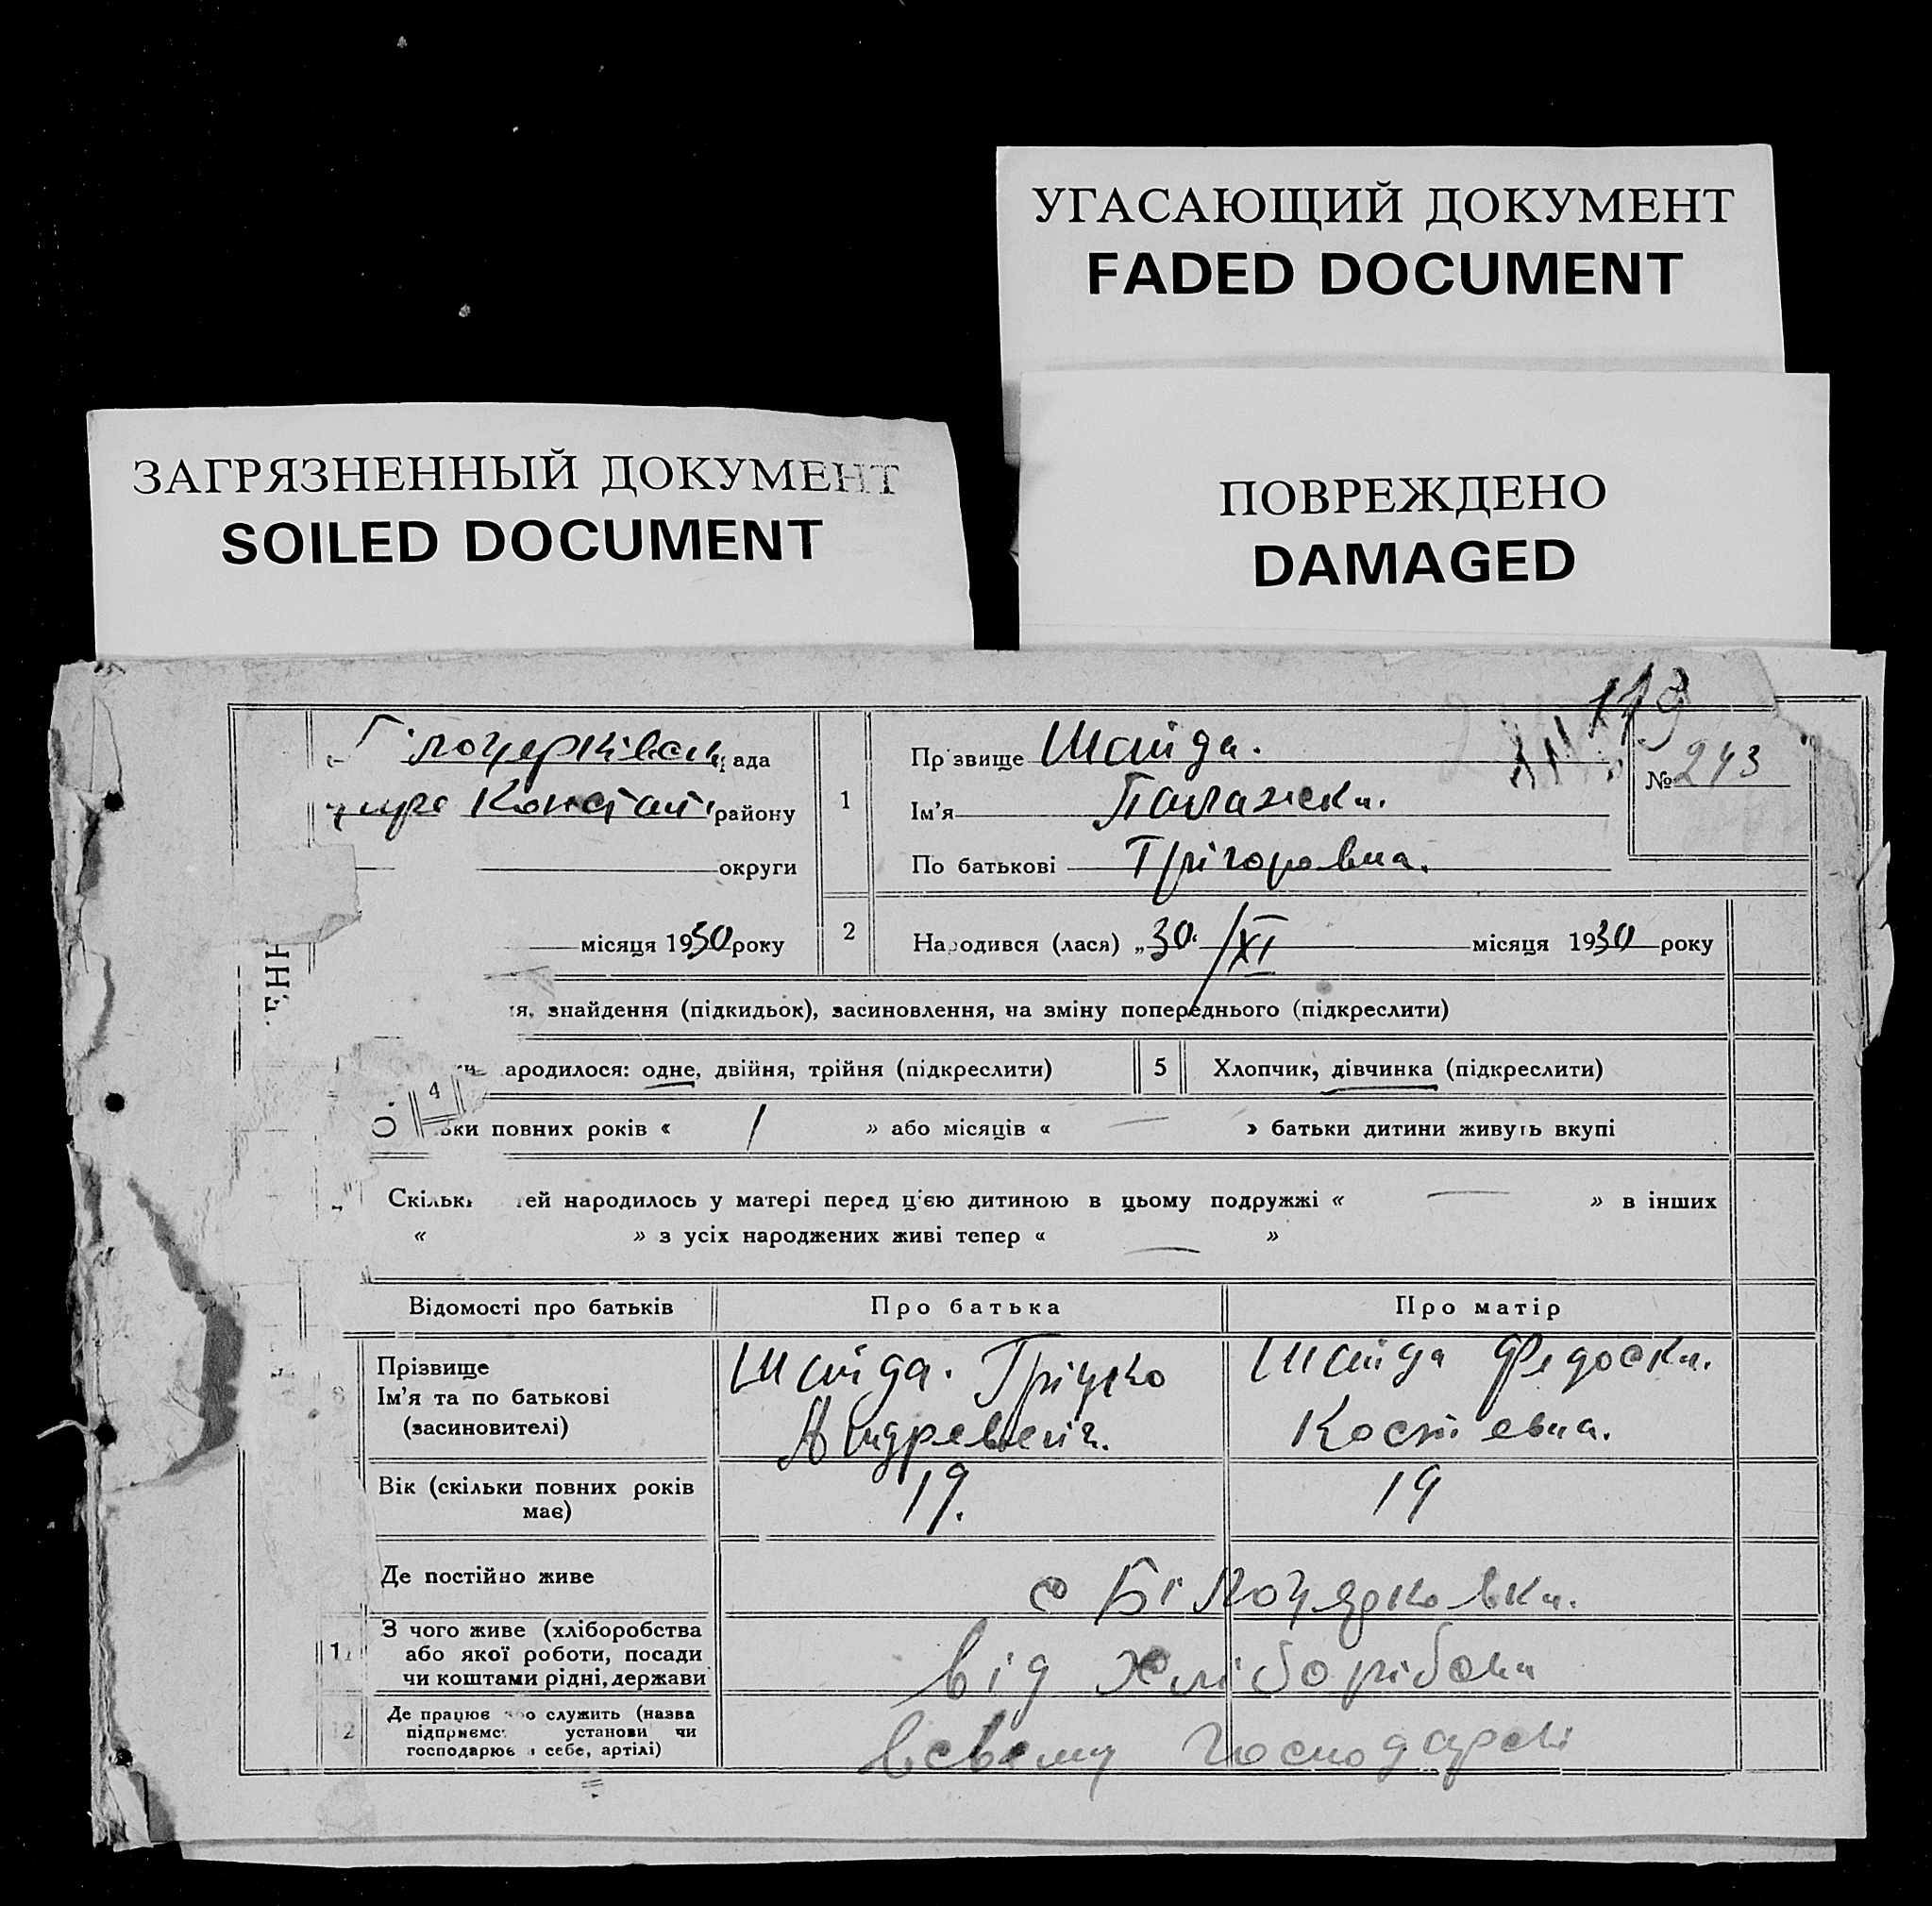 УГАСАЮЩИЙ ДОКУМЕНТ
FADED DOCUMENT
ЗАГРЯЗНЕННЫЙ ДОКУМЕНТ
SOILED DOCUMENT
ПОВРЕЖДЕНО
DAMAGED
ілоцерківськ ада
Констант району
округи
місяця 1930 року
1
Прізвище Шайда.
Ім'я Палажка.
По батькові Грігоровна.
№ 243
2
Народився (лася) „30. /XI місяця 1930 року
я, знайдення (підкидьок), засиновлення, на зміну попереднього (підкреслити)
4
ародилося: одне, двійня, трійня (підкреслити)
5
Хлопчик, дівчинка (підкреслити)
ьки повних років « 1 » або місяців « — » батьки дитини живуть вкупі
Скільки тей народилось у матері перед ц'єю дитиною в цьому подружжі « — » в інших
« » з усіх народжених живі тепер « — »
Відомості про батьків
Про батька
Про матір
Прізвище
Ім'я та по батькові
(засиновителі)
Шайда. Гріцько
Андревеич.
Шайда Федоска.
Костєвна.
Вік (скільки повних років
має)
19.
19
Де постійно живе
с Білоцярковка.
З чого живе (хліборобства
або якої роботи, посади
чи коштами рідні, держави
від хліборібона
12
Де працює або служить (назва
підприємс установи чи
господарює в себе, артілі)
всвему господарсві